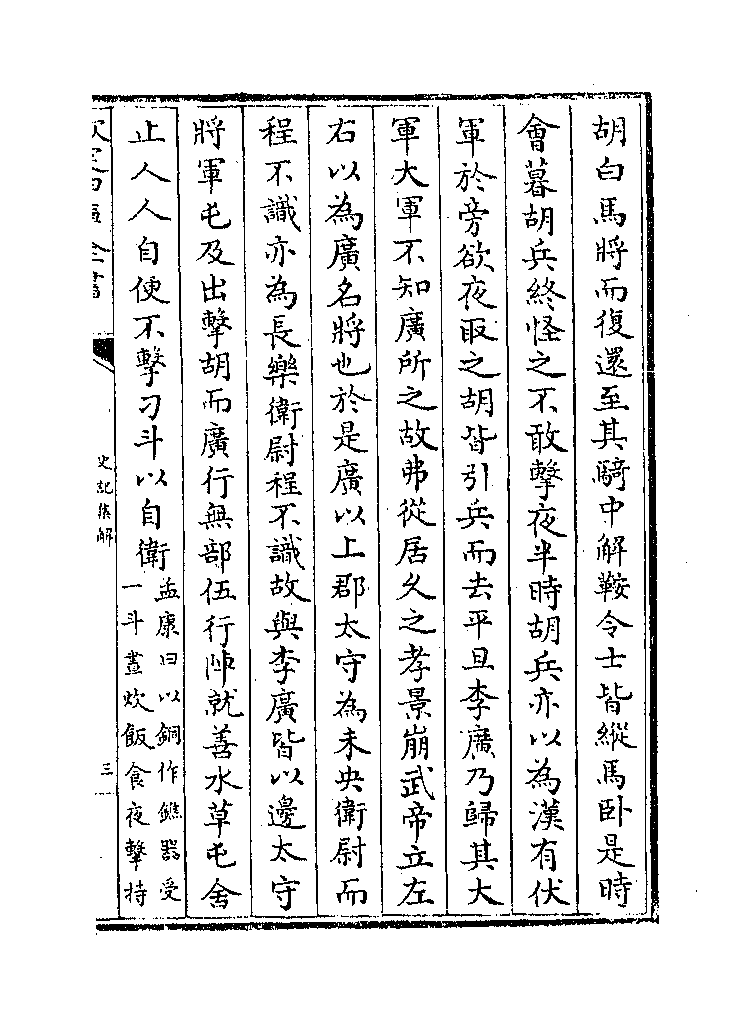 胡白馬將而復還至其騎中解鞍令士皆縱馬卧是時
會暮胡兵終怪之不敢擊夜半時胡兵亦以為漢有伏
軍於旁欲夜取之胡皆引兵而去平旦李廣乃歸其大
軍大軍不知廣所之故弗從居久之孝景崩武帝立左
右以為廣名將也於是廣以上郡太守為未央衛尉而
程不識亦為長樂衛尉程不識故與李廣皆以邊太守
將軍屯及出擊胡而廣行無部伍行陣就善水草屯舍
止人人自便不擊刁斗以自衛
孟康曰以銅作鐎器受
一斗晝炊飯食夜擊持
欽定四庫全書
史記集解
三